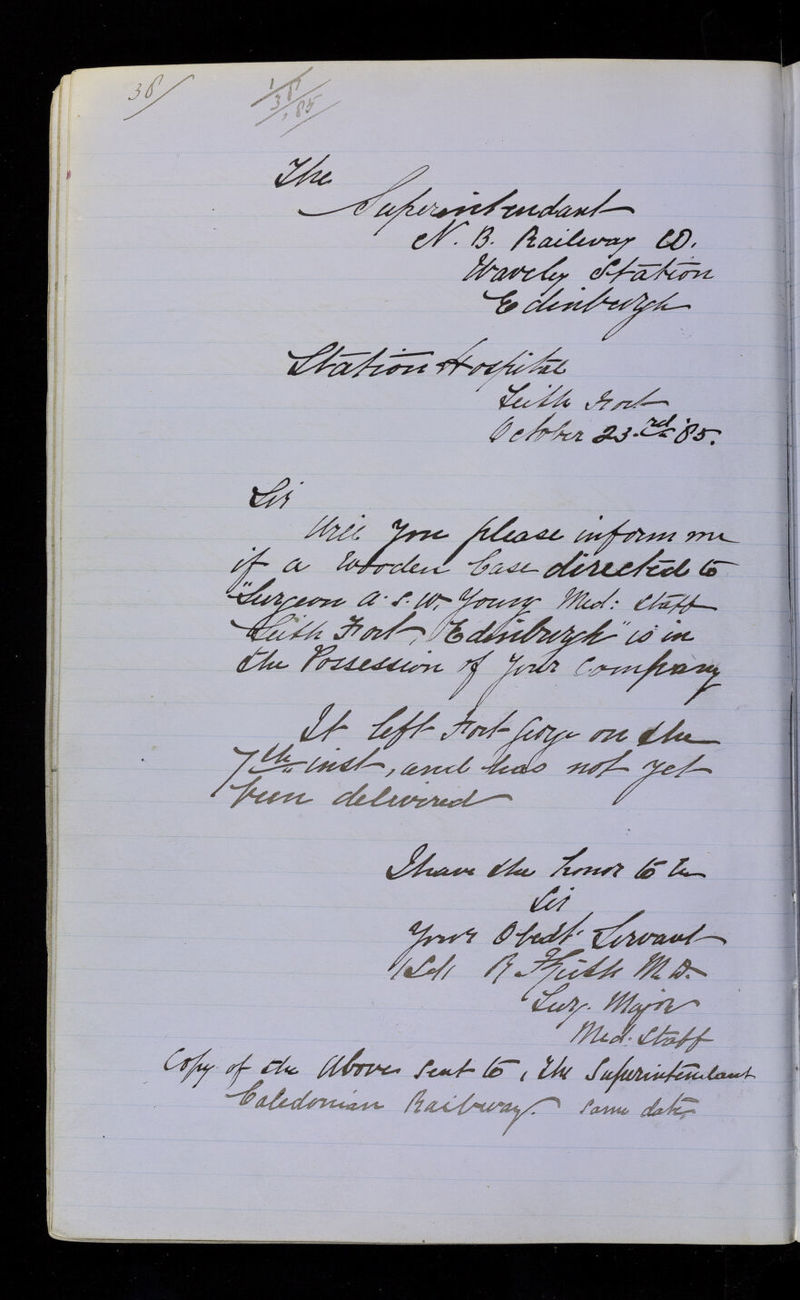 38/
1/38/85
The
Superintendant
N. B. Railway CO.
Wavely Station
Edinburgh
Station Hospital
Leith Fort
October 23.rd '85.
Sir
Will you please inform me
if a Wooden Case directed to
"Surgeon A. S. W. Young Med: Staff
Leith Fort, Edinburgh" is in
the Possession of your Company
It left Fort George on the
7th inst, and has not yet
been delivered
I have the honor to be
Sir
Your Obedt Servant
(Sd) R Keith M.D.
Surg. Major
Med. Staff
Copy of the above sent to, the Superintendant
Caledonian Railway. same date